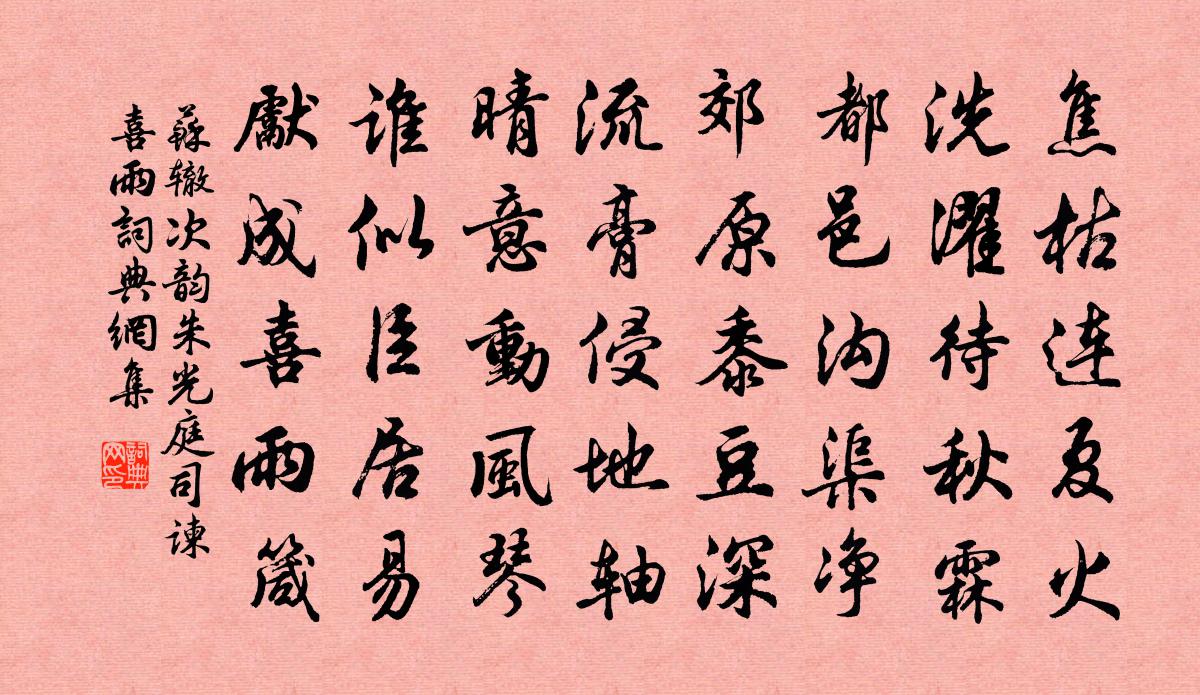 焦枯连夏火
洗濯待秋霖
都邑沟渠净
郊原黍豆深
流膏侵地轴
晴意動風琴
谁似臣居易
獻成喜雨箴
蘇辙次韵朱光庭司谏
喜雨詞典網集
詞典網印